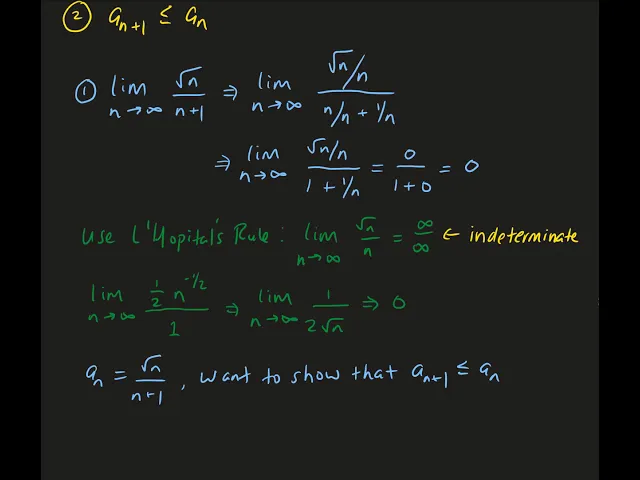 ② a_{n+1} ≤ a_n
① lim_{n→∞} √n/(n+1) ⇒ lim_{n→∞} (√n/n)/(n/n + 1/n)
⇒ lim_{n→∞} (√n/n)/(1 + 1/n) = 0/(1+0) = 0
Use L'Hopital's Rule: lim_{n→∞} √n/n = ∞/∞ ← indeterminate
lim_{n→∞} (1/2 n^{-1/2})/1 ⇒ lim_{n→∞} 1/(2√n) ⇒ 0
a_n = √n/(n+1), want to show that a_{n+1} ≤ a_n